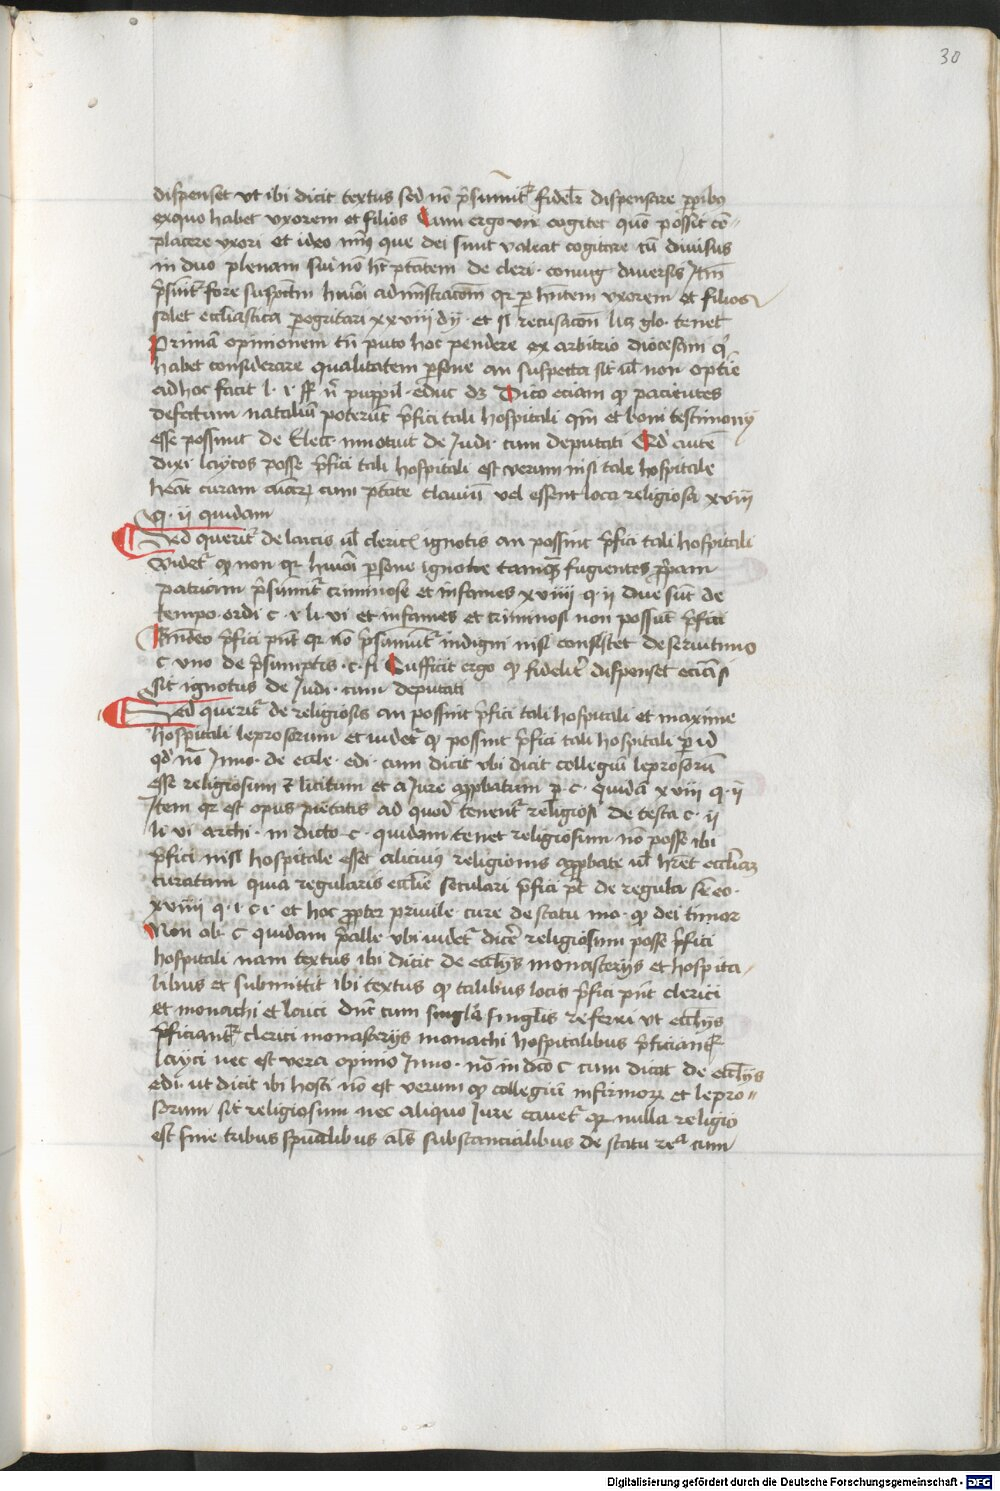 30
dispenset vt ibi dicit textus sed nō p̄sumit᷑ fidelr̄ dispensare pꝑibꝫ
exquo habet vxorem et filios Cum ergo vir cogitet quō possit cō-
placere vxori et ideo mīꝫ que dei sunt valeat cogitare tū diuisus
in duo plenam sui nō hꝫ ptātem de cleri · coniug diuersis Itē
fore suspectū hmōi adm̄istracōm qr ꝑ hn̄tem vxorem et filios
solet eccliastica xxviii dij · et si recusacōn lic glo · tenet
Primā opinionem tn̄ puto hoc pendere ex arbitrio diocesani qͥ
habet considerare qualitatem ꝑsone an suspecta sit ul̄ non
ad hoc facit l · i · ff n̄ puppil · educ dꝫ Dico eciam ꝙ pacientes
defectum nataliū poterūt p̄fici tali hospitali qm̄ et boni testimonij
esse possunt de Elect · innotuit de Iudi · cum deputati Qd̄ autē
dixi laycos posse p̄fici tali hospitali est verum nisi tale hospitale
hēat curam aīarꝫ cum ptāte clauiū vel essent loca religiosa xviii
q · ii quidam
Sed querit᷑ de laicis ul̄ clericꝭ ignotis an possint p̄fici tali hospitali
Videt᷑ ꝙ non qr hmōi ꝑsone ignote tamqꝫ fugientes ꝓpam
patriam p̄sumūt᷑ criminose et infames xviiii q · ii due sūt de
tempo · ordi c · i · li · vi et infames et criminosi non possūt p̄fici
Rn̄deo p̄fici pn̄t qr nō p̄sumūt᷑ indigni nisi consistet de seruitimo
c · vno de p̄sumptis · c · fi Sufficit ergo ꝙ fidelit᷑ dispenset eciāsi
sit ignotus de Iudi · cum deputati
Sed querit᷑ de religiosis an possint p̄fici tali hospitali et maxime
hospitali leprosorum et videt᷑ ꝙ possint p̄fici tali hospitali ꝑ id
qd̄ nō Inno · de eccle · edi · cum dicit vbi dicit collegiū leprosorū
esse religiosum et licitum et a Iure appbatum ꝑ c · quidā xviii q · ii
Item qr est opus pietatis ad quod tenent᷑ religiosi de testa c · ii
li · vi archi · in dicto · c · quidam tenet religiosum · nō posse ibi
p̄fici nisi hospitale esset alicuius religionis appbate ul̄ hr̄et eccliam
curatam quia regularis ecclie seculari p̄fici pt̄ de regula
xviiii q · i · c · i · et hoc ꝓpter priuile · cure de statu mo · ꝙ dei timor
Non ob · c quidam vbi videt᷑ dicē religiosum posse p̄fici
hospitali nam textus ibi dicit de eccl̄ijs monasterijs et hospita-
libus et submittit ibi textus ꝙ talibus locis p̄fici pn̄t clerici
et monachi et laici dn̄t cum singl̄a singl̄is referri vt eccl̄ijs
p̄ficiantꝭ clerici monasterijs monachi hospitalibus p̄ficiantꝭ
layci nec est vera opinio Inno · nō in dc̄o c cum dicat de eccl̄ijs
edi · ut dicit ibi hosti nō est verum ꝙ collegiū infirmorꝫ et lepro-
sorum sit religiosum nec aliquo Iure cauet᷑ qr nulla religio
est sine tribus spūalibus al̄s substancialibus de statu reͣ cum
Digitalisierung gefördert durch die Deutsche Forschungsgemeinschaft - DFG